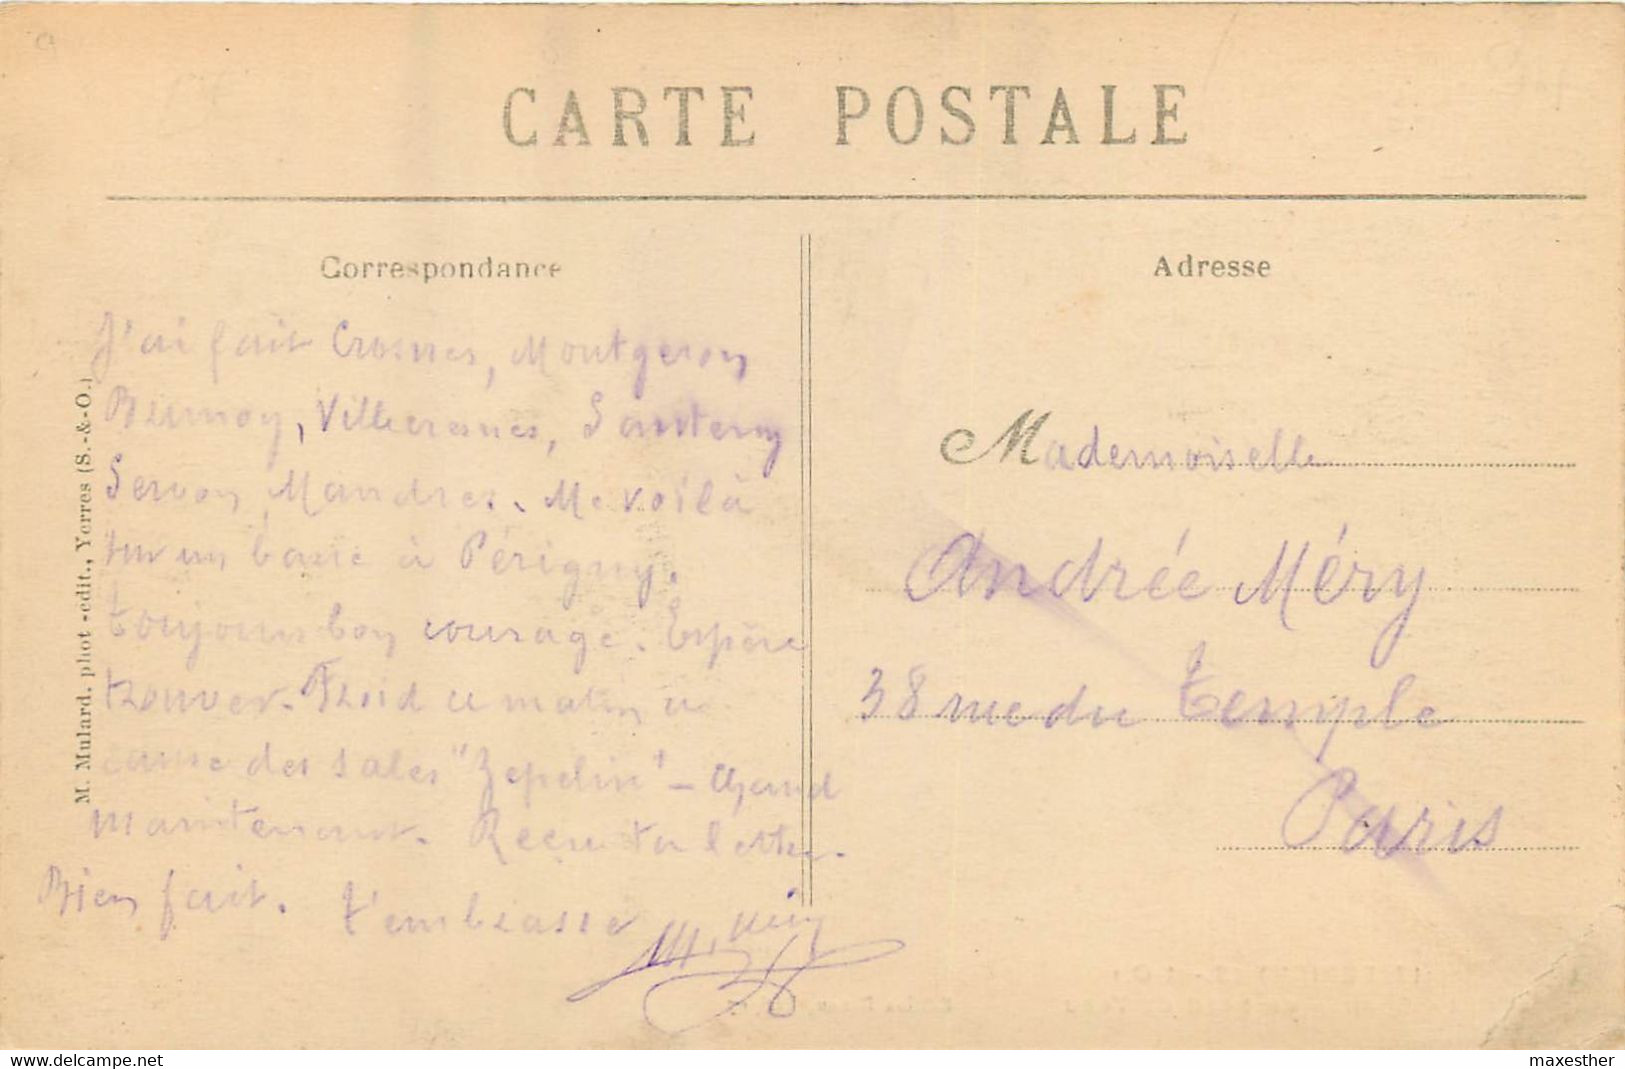 CARTE POSTALE
Correspondance
Adresse
J'ai fait Crosnes, Montgeron
Brunoy, Villecresnes, Santeny
Servon, Mandres. Me voilà
sur un banc à Périgny.
toujours bon courage. Espère
trouver. Froid ce matin à
cause des sales "Zepelin" - Chaud
maintenant. Reçu ta lettre.
Bien fait. t'embrasse
Méry
M. Mulard. phot.-edit., Yerres (S.-&-O.)
Mademoiselle
Andrée Méry
38 rue du temple
Paris
maxesther